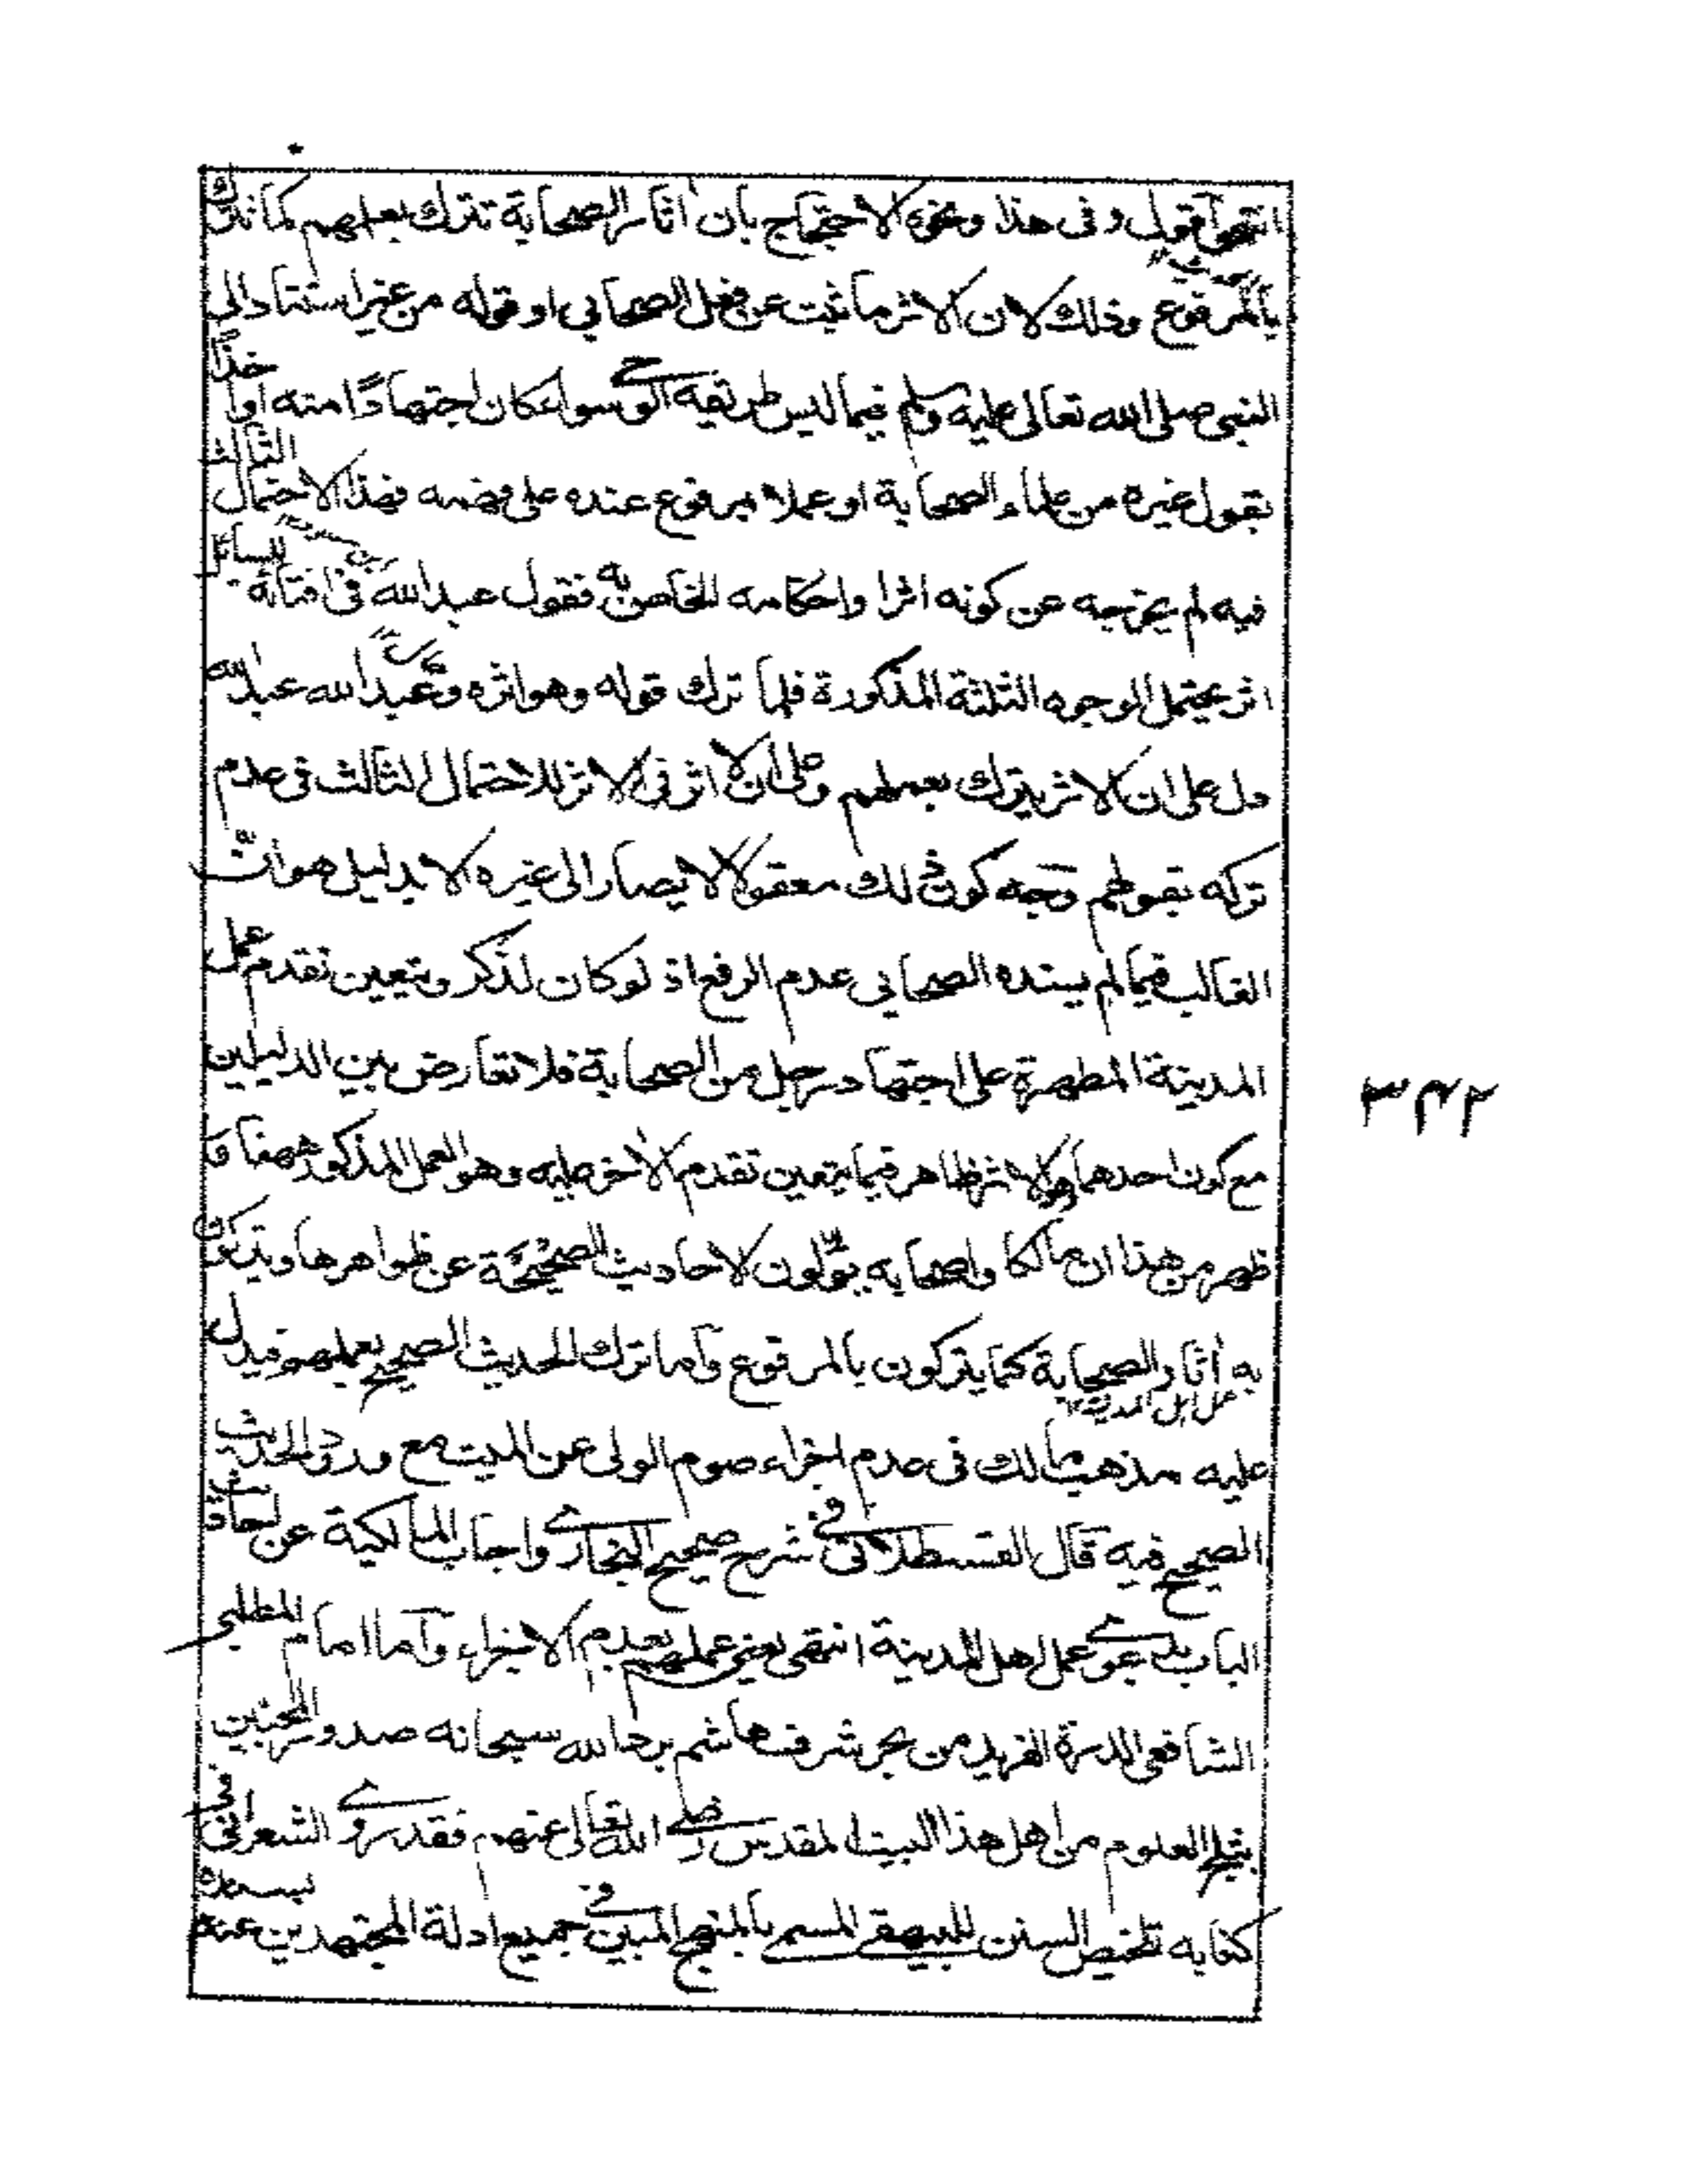 انتهى اقول وفى هذا ونحوه الاحتجاج بان اثار الصحابة تترك بعملهم كما تترك
بالمرفوع وذلك لان الاثر ما ثبت عن فعل الصحابي او قوله من غير استناد الى
النبى صلى الله تعالى عليه وسلم فيما ليس طريقه الوحي سواء كان اجتهادًا منه او اخذًا
بقول غيره من علماء الصحابة او عملا بمرفوع عنده على فهمه فهذا الاحتمال الثالث
فيه لم يخرجه عن كونه اثرا واحكامه الخاص به فقول عبد الله فى افتائه للسائل
اثر يحتمل الوجوه الثلثة المذكورة فلما ترك قوله وهو اثره وعبد الله عبد الله
دل على ان الاثر يترك بعملهم وعلى ان لا اثر فى الاثر للاحتمال الثالث فى عدم
تركه بقولهم وجه كون ذلك معقولا لا يصار الى غيره الا بدليل هو ان
الغالب فيما لم يسنده الصحابي عدم الرفع اذ لو كان لذكر ويتعين تقدم عمل
المدينة المطهرة على اجتهاد رجل من الصحابة فلا تعارض بين الدليلين
مع كون احدهما وهو الاثر ظاهر فيما يتعين تقدم الاخر عليه وهو العمل المذكور فهفنا و
ظهر من هذا ان مالكا واصحابه يؤلون الاحاديث الصحيحة عن ظواهرها ويتركون
به اثار الصحابة كما يتركون بالمرفوع واما ترك الحديث الصحيح بعملهم فيدل
عمل اهل المدينة
عليه مذهب مالك فى عدم اجزاء صوم الولى عن الميت مع ورود الحديث
الصحيح فيه قال القسطلانى فى شرح صحيح البخارى واجاب المالكية عن احاديث
الباب بدعوى عمل اهل المدينة انتهى يعنى عملهم بعدم الاجزاء واما امام المطلبى
الشافعى الدرة الفريد من بحر شرف هاشم برد الله سبحانه صدور المحبين
بثلج العلوم من اهل هذا البيت المقدس رضى الله تعالى عنهم فقد روى الشعرانى فى
كتابه تلخيص السنن للبيهقى المسمى بالمنهج المبين فى جميع ادلة المجتهدين عنه
٣٤٢